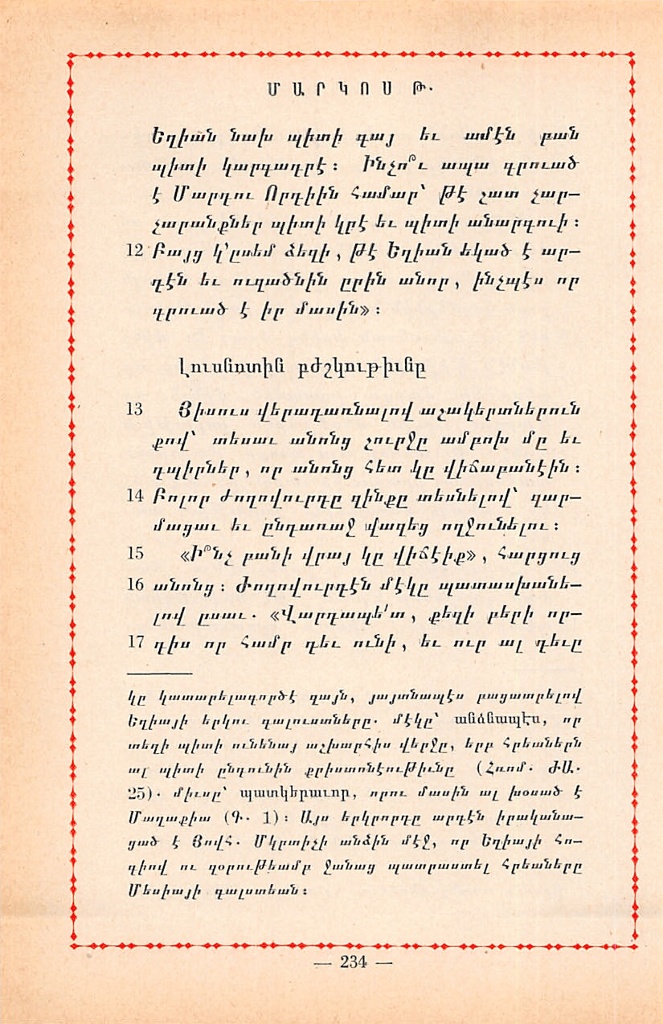 ՄԱՐԿՈՍ Թ.
Եղիան նախ պիտի գայ եւ ամէն բան
պիտի կարգադրէ։ Ինչո՞ւ ապա գրուած
է Մարդու Որդիին համար՝ թէ շատ չար–
չարանքներ պիտի կրէ եւ պիտի անարգուի։
12 Բայց կ՚ըսեմ ձեզի, թէ Եղիան եկած է ար–
դէն եւ ուզածնին ըրին անոր, ինչպէս որ
գրուած է իր մասին»։
Լուսնոտին բժշկութիւնը
13 Յիսուս վերադառնալով աշակերտներուն
քով՝ տեսաւ անոնց շուրջը ամբոխ մը եւ
դպիրներ, որ անոնց հետ կը վիճաբանէին։
14 Բոլոր ժողովուրդը զինքը տեսնելով՝ զար–
մացաւ եւ ընդառաջ վազեց ողջունելու։
15 «Ի՞նչ բանի վրայ կը վիճէիք», հարցուց
16 անոնց։ Ժողովուրդէն մէկը պատասխանե–
լով ըսաւ. «Վարդապե՛տ, քեզի բերի որ–
17 դիս որ համր դեւ ունի, եւ ուր ալ դեւը
կը կատարելագործէ զայն, յայտնապէս բացատրելով
Եղիայի երկու գալուստները. մէկը՝ անձնապէս, որ
տեղի պիտի ունենայ աշխարհիս վերջը, երբ հրեաներն
ալ պիտի ընդունին քրիստոնէութիւնը (Հռոմ. ԺԱ.
25). միւսը՝ պատկերաւոր, որու մասին ալ խօսած է
Մաղաքիա (Գ. 1)։ Այս երկրորդը արդէն իրականա–
ցած է Յովհ. Մկրտիչի անձին մէջ, որ Եղիայի հո–
գիով ու զօրութեամբ ջանաց պատրաստել հրեաները
Մեսիայի գալստեան։
— 234 —